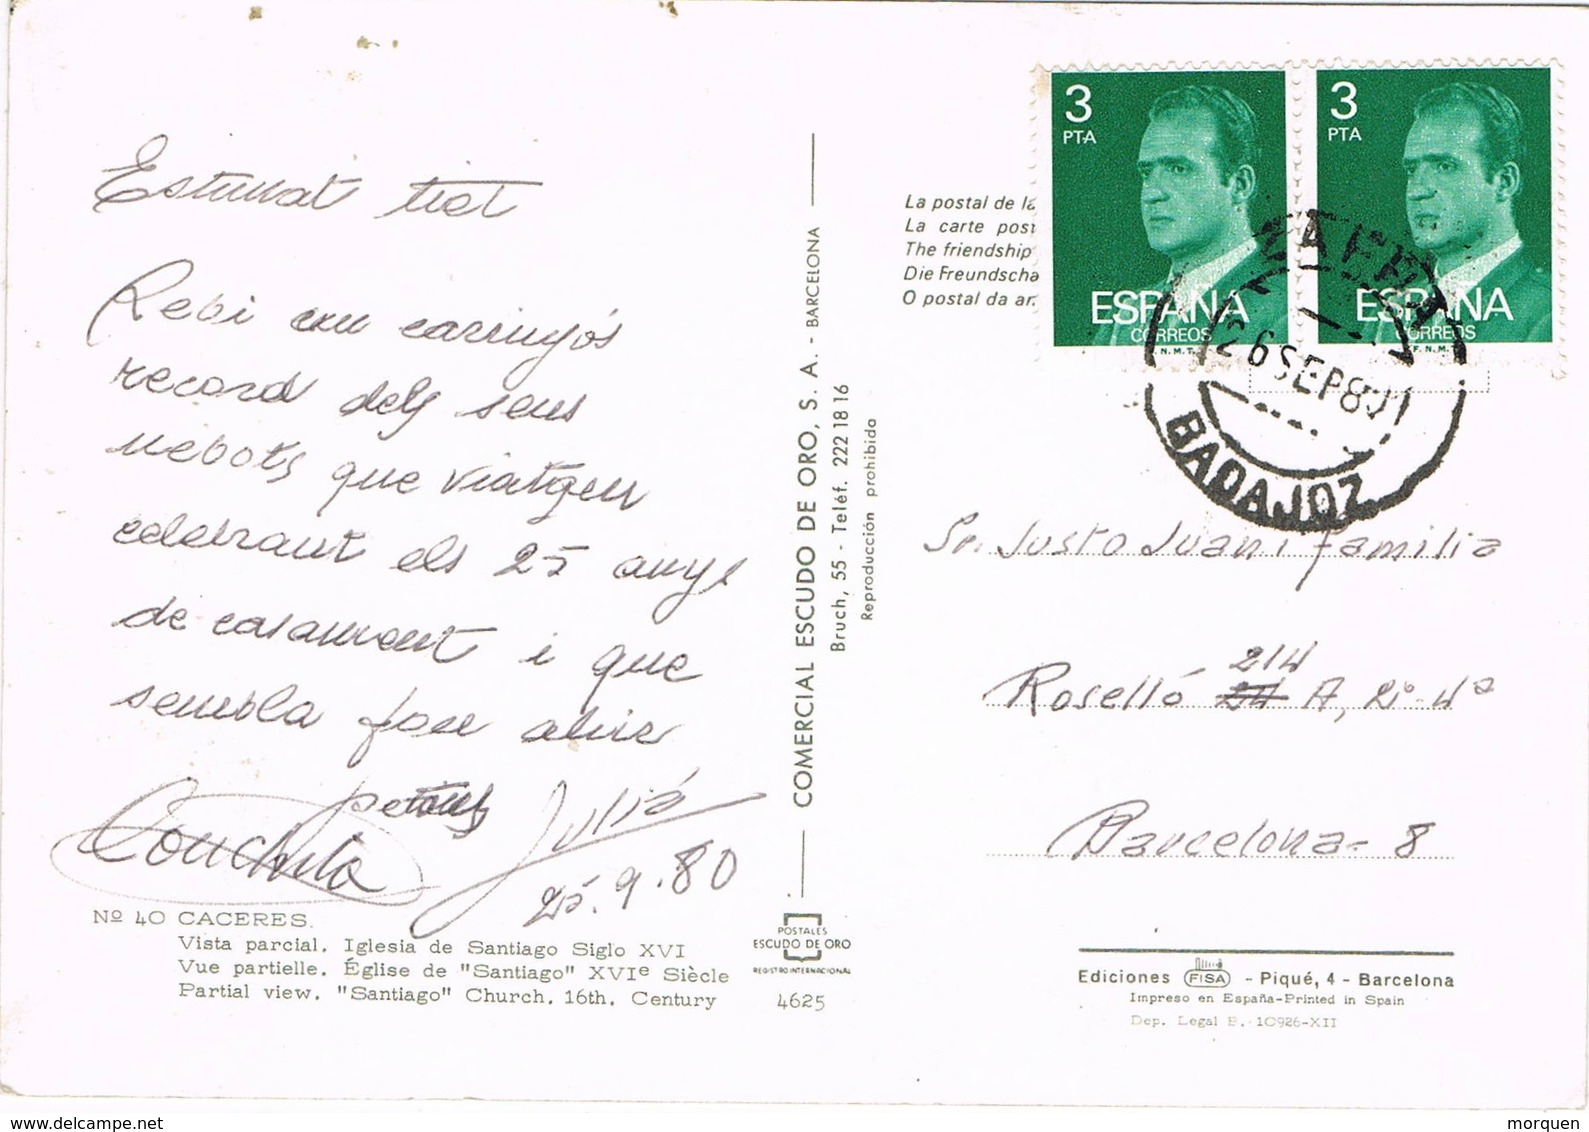 Estimat tiet
Rebi un carinyós
record dels seus
nebots que viatgen
celebrant els 25 anys
de casament i que
sembla fou ahir
petons Julià
Conchita
25.9.80
Nº 40 CACERES.
Vista parcial. Iglesia de Santiago Siglo XVI
Vue partielle. Église de "Santiago" XVIe Siècle
Partial view. "Santiago" Church. 16th. Century
COMERCIAL ESCUDO DE ORO, S. A. - BARCELONA
Bruch, 55 - Teléf. 222 18 16
Reproducción prohibida
POSTALES
ESCUDO DE ORO
REGISTRO INTERNACIONAL
4625
La postal de la
La carte post
The friendship
Die Freundscha
O postal da am
3
PTA
ESPAÑA
CORREOS
F.N.M.T.
3
PTA
ESPAÑA
CORREOS
F.N.M.T.
ZAFRA
26 SEP 80
BADAJOZ
Sr. Justo Juan i familia
214
Roselló A, 2º-4ª
Barcelona-8
Ediciones FISA - Piqué, 4 - Barcelona
Impreso en España-Printed in Spain
Dep. Legal B. 10926-XII
morquen